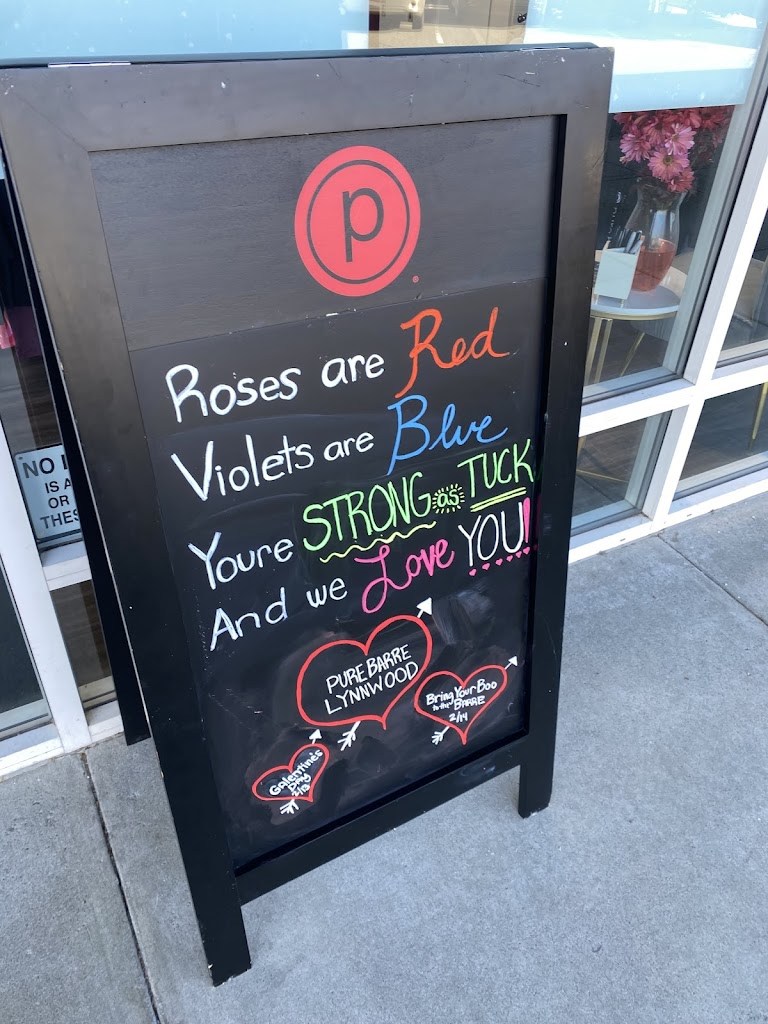 p
Roses are Red
Violets are Blue
Youre STRONG as TUCK
And we Love YOU!
PURE BARRE
LYNNWOOD
Bring Your Boo
to the BARRE
2/14
Galentine's
Day
2/13
NO
IS A
OR
THES